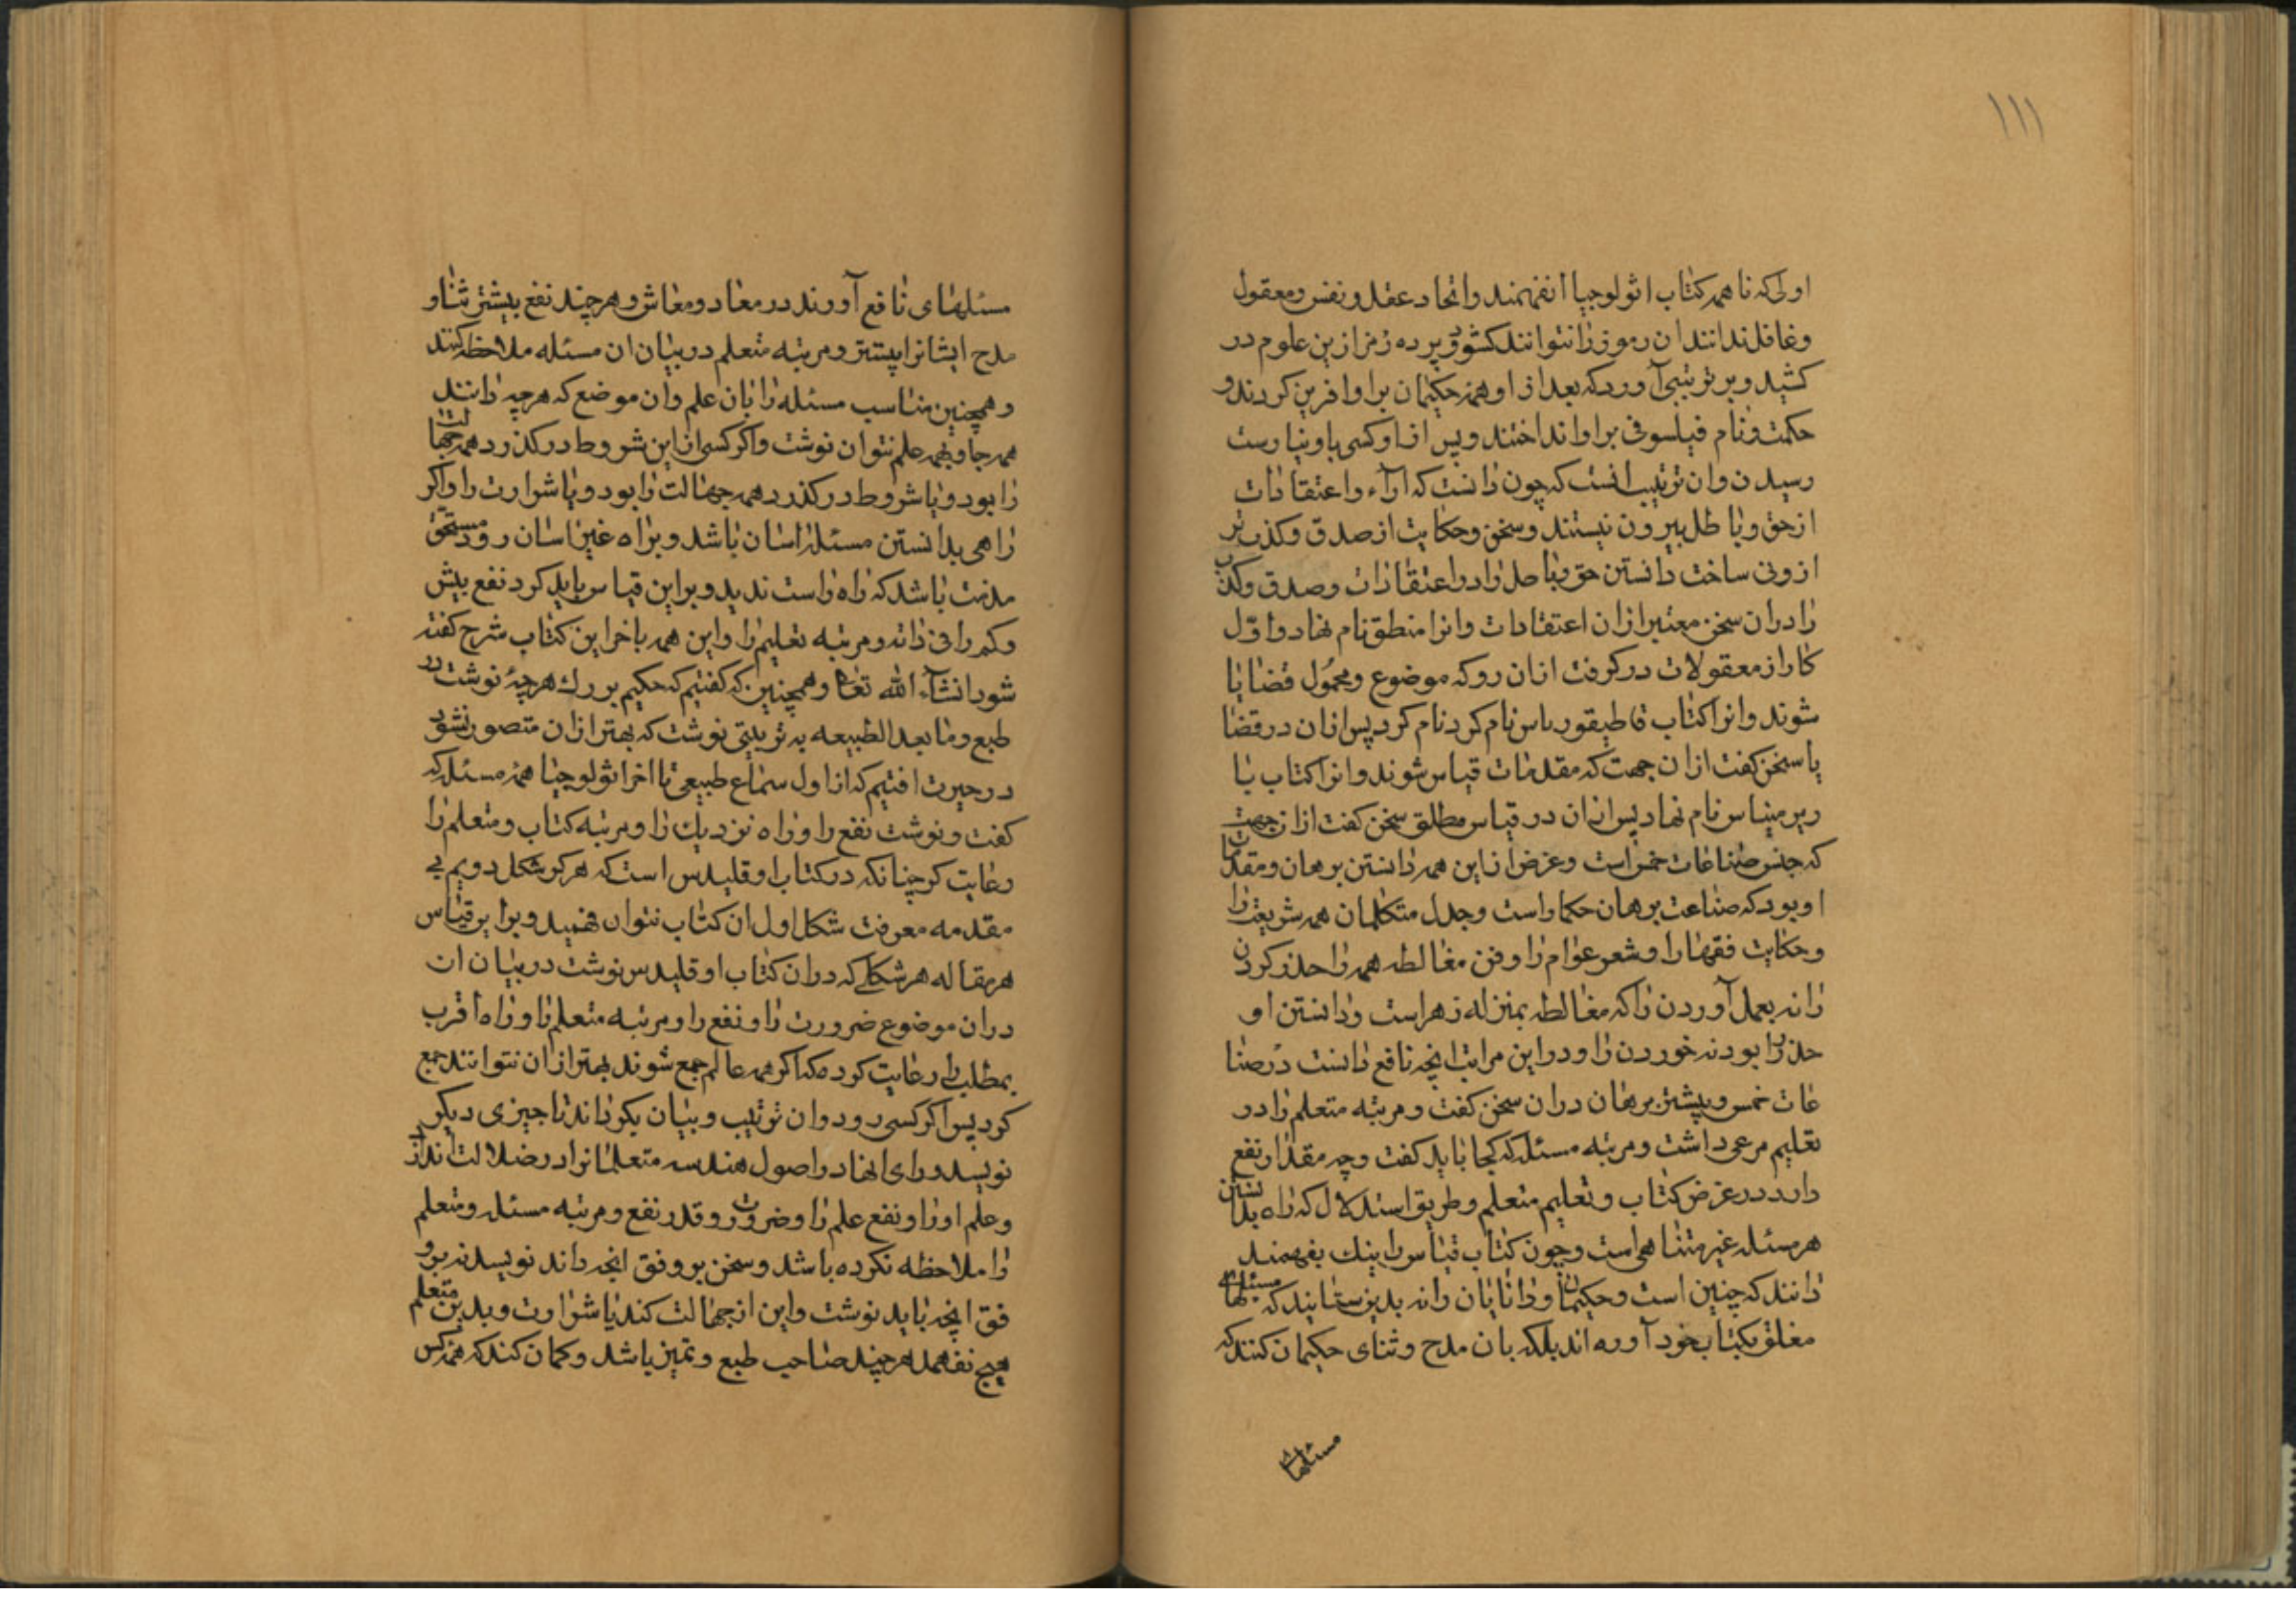 ۱۱۱
اولی که تا همه کتاب اثولوجیا انفهمند واتحاد عقل و نفس و معقول
وغافل ندانند ان رموز را نتوانند کشود پرده رمز ازین علوم در
کشید و بر ترتیبی آورد که بعد از او همه حکیمان برا و افرین کردند و
حکمت و نام فیلسوفی برا و انداختند و پس از او کسی باو نیارست
رسیدن وان ترتیب انست که چون دانست که اراء واعتقادات
از حق و باطل بیرون نیستند و سخن و حکایت از صدق و کذب پر
ازونی ساخت دانستن حق وباطل را در اعتقادات وصدق وکذب
را دران سخن معتبر ازان اعتقادات وانرا منطق نام نهاد واول
کار از معقولات در گرفت ازان رو که موضوع ومحمول قضایا
شوند وانرا کتاب قاطیقوریاس نام کرد نام کرد پس ازان در قضا
یا سخن گفت ازان جهت که مقدمات قیاس شوند وانرا کتاب با
ریرمیناس نام نهاد پس ازان در قیاس مطلق سخن گفت ازان جهت
که جنس صناعات خمس است وغرض ازین همه دانستن برهان ومقدمات
او بود که صناعت برهان حکما راست وجدل متکلمان همه شریعت را
وحکایت فقها را وشعر عوام را وفن مغالطه همه را حذر کردن
را نه بعمل آوردن را که مغالطه بمنزله زهر است ودانستن او
حذر را بود نه خوردن را ودر این مراتب انچه نافع دانست در صنا
عات خمس وبیشتر برهان دران سخن گفت ومرتبه متعلم را در
تعلیم مرعی داشت ومرتبه مسئله که کجا باید گفت وچه مقدار نفع
دارد در غرض کتاب وتعلیم متعلم وطریق استدلال که راه بدانستن
هر مسئله غیر متناهی است وچون کتاب قیاس را نیک بفهمند
دانند که چنین است وحکیمان ودانایان را نه بدین ستایند که مسئلهای
مغلق بکتاب خود آورده اند بلکه بان مدح وثنای حکیمان کنند که
مسئلهای
مسئلهای نافع آورند در معاد ومعاش وهر چند نفع بیشتر ثنا و
مدح ایشانرا بیشتر ومرتبه متعلم در بیان ان مسئله ملاحظه کنند
وهمچنین مناسب مسئله را بان علم وان موضع که هر چه دانند
همه جا وبهمه علم نتوان نوشت واگر کسی ازین شروط در گذرد همه جهالت
را بود ویا شروط در گذرد همه جهالت را بود ویا شرارت را واگر
راهی بدانستن مسئله را اسان باشد وبراه غیر اسان رود مستحق
مذمت باشد که راه راست ندید وبر این قیاس باید کرد نفع بیش
وکم را فی ذاته ومرتبه تعلیم را واین همه باخر این کتاب شرح گفته
شود انشاء الله تعالی وهمچنین که گفتیم که حکیم بزرگ هر چه نوشت در
طبع وما بعد الطبیعه به ترتیبی نوشت که بهتر ازان متصور نشود
در حیرت افتیم که از اول سماع طبیعی تا اخر اثولوجیا همه مسئله که
گفت ونوشت نفع را وراه نزدیک را ومرتبه کتاب ومتعلم را
رعایت کرد چنانکه در کتاب اوقلیدس است که هرگز شکل دویم بی
مقدمه معرفت شکل اول ان کتاب نتوان فهمید وبرابر قیاس
هر مقاله هر شکلی که دران کتاب اوقلیدس نوشت در بیان ان
دران موضوع ضرورت را ونفع را ومرتبه متعلم را وراه اقرب
بمطلب را رعایت کرده که اگر همه عالم جمع شوند بهتر ازان نتوانند جمع
کرد پس اگر کسی رود وان ترتیب وبیان بگرداند تا چیزی دیگر
نویسد ورای انها در اصول هندسه متعلمانرا در ضلالت اندازد
وعلم او را ونفع علم را وضرورت وقدر نفع ومرتبه مسئله ومتعلم
را ملاحظه نکرده باشد وسخن بر وفق انچه داند نویسد نه بر و
فق انچه باید نوشت واین از جهالت کند یا شرارت وبدین متعلم
هیچ نفهمد هر چند صاحب طبع وتمیز باشد وگمان کند که همه کس